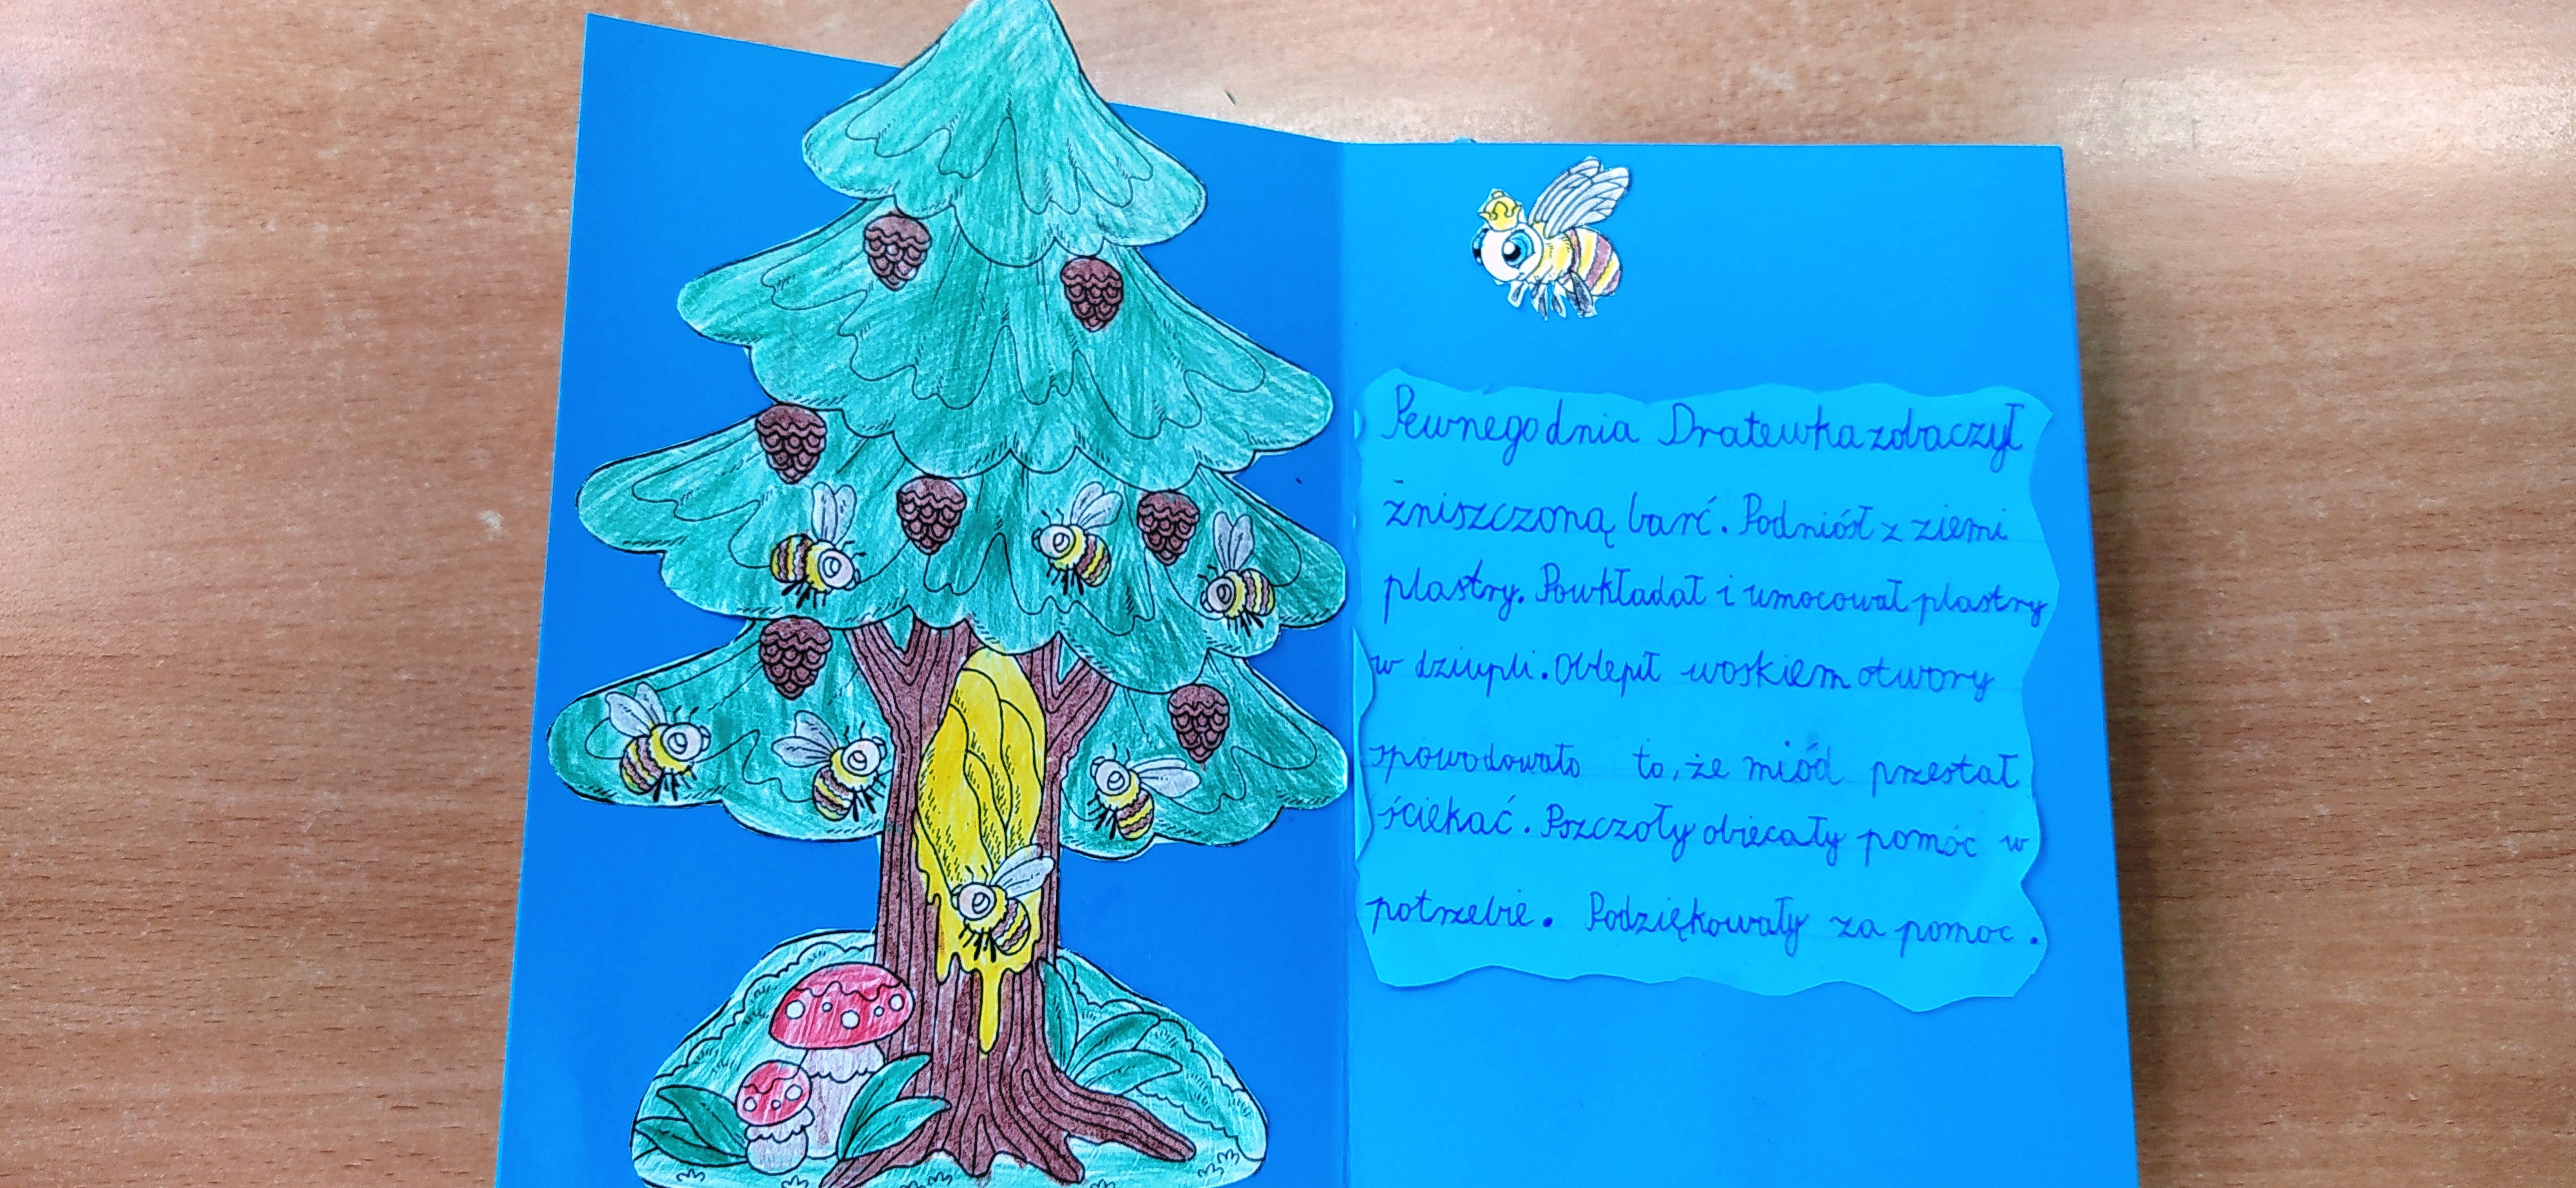 Pewnego dnia Dratewka zobaczył
żniszczoną barć. Podniósł z ziemi
plastry. Powkładał i umocował plastry
w dziupli. Oblepił woskiem otwory
spowodowało to, że miód przestał
ściekać. Pszczoły obiecały pomóc w
potrzebie. Podziękowały za pomoc.